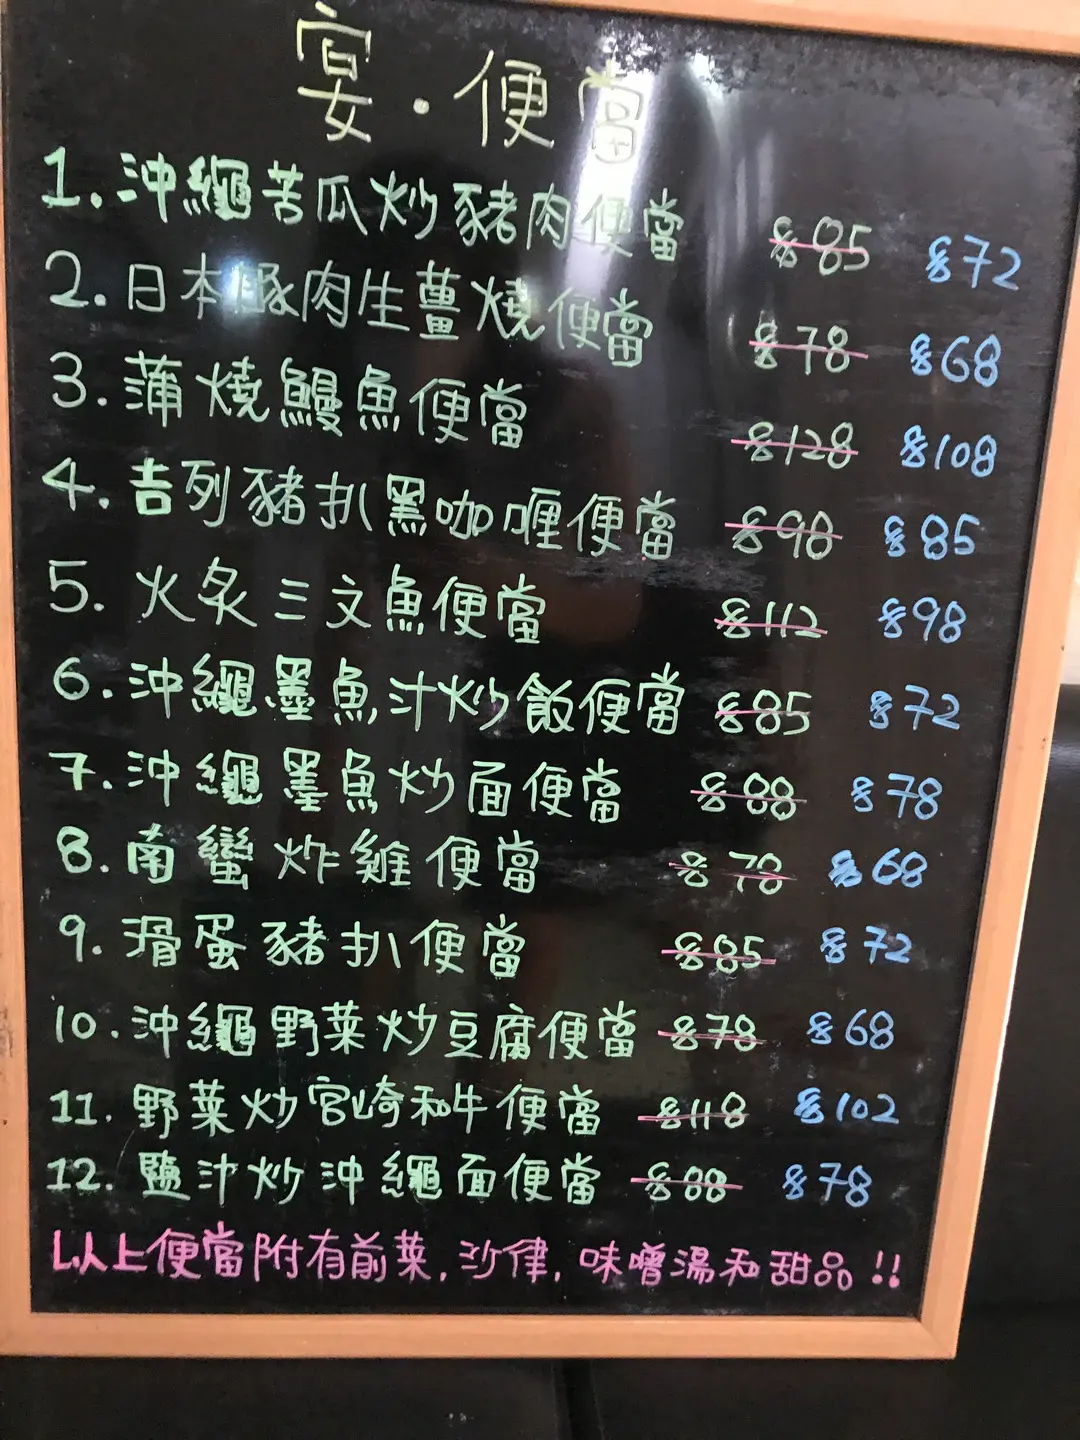 宴·便當
1. 沖繩苦瓜炒豬肉便當 $85 $72
2. 日本豚肉生薑燒便當 $78 $68
3. 蒲燒鰻魚便當 $128 $108
4. 吉列豬扒黑咖喱便當 $98 $85
5. 火炙三文魚便當 $112 $98
6. 沖繩墨魚汁炒飯便當 $85 $72
7. 沖繩墨魚炒面便當 $88 $78
8. 南蠻炸雞便當 $78 $68
9. 滑蛋豬扒便當 $85 $72
10. 沖繩野菜炒豆腐便當 $78 $68
11. 野菜炒宮崎和牛便當 $118 $102
12. 鹽汁炒沖繩面便當 $88 $78
以上便當附有前菜, 沙律, 味噌湯和甜品!!